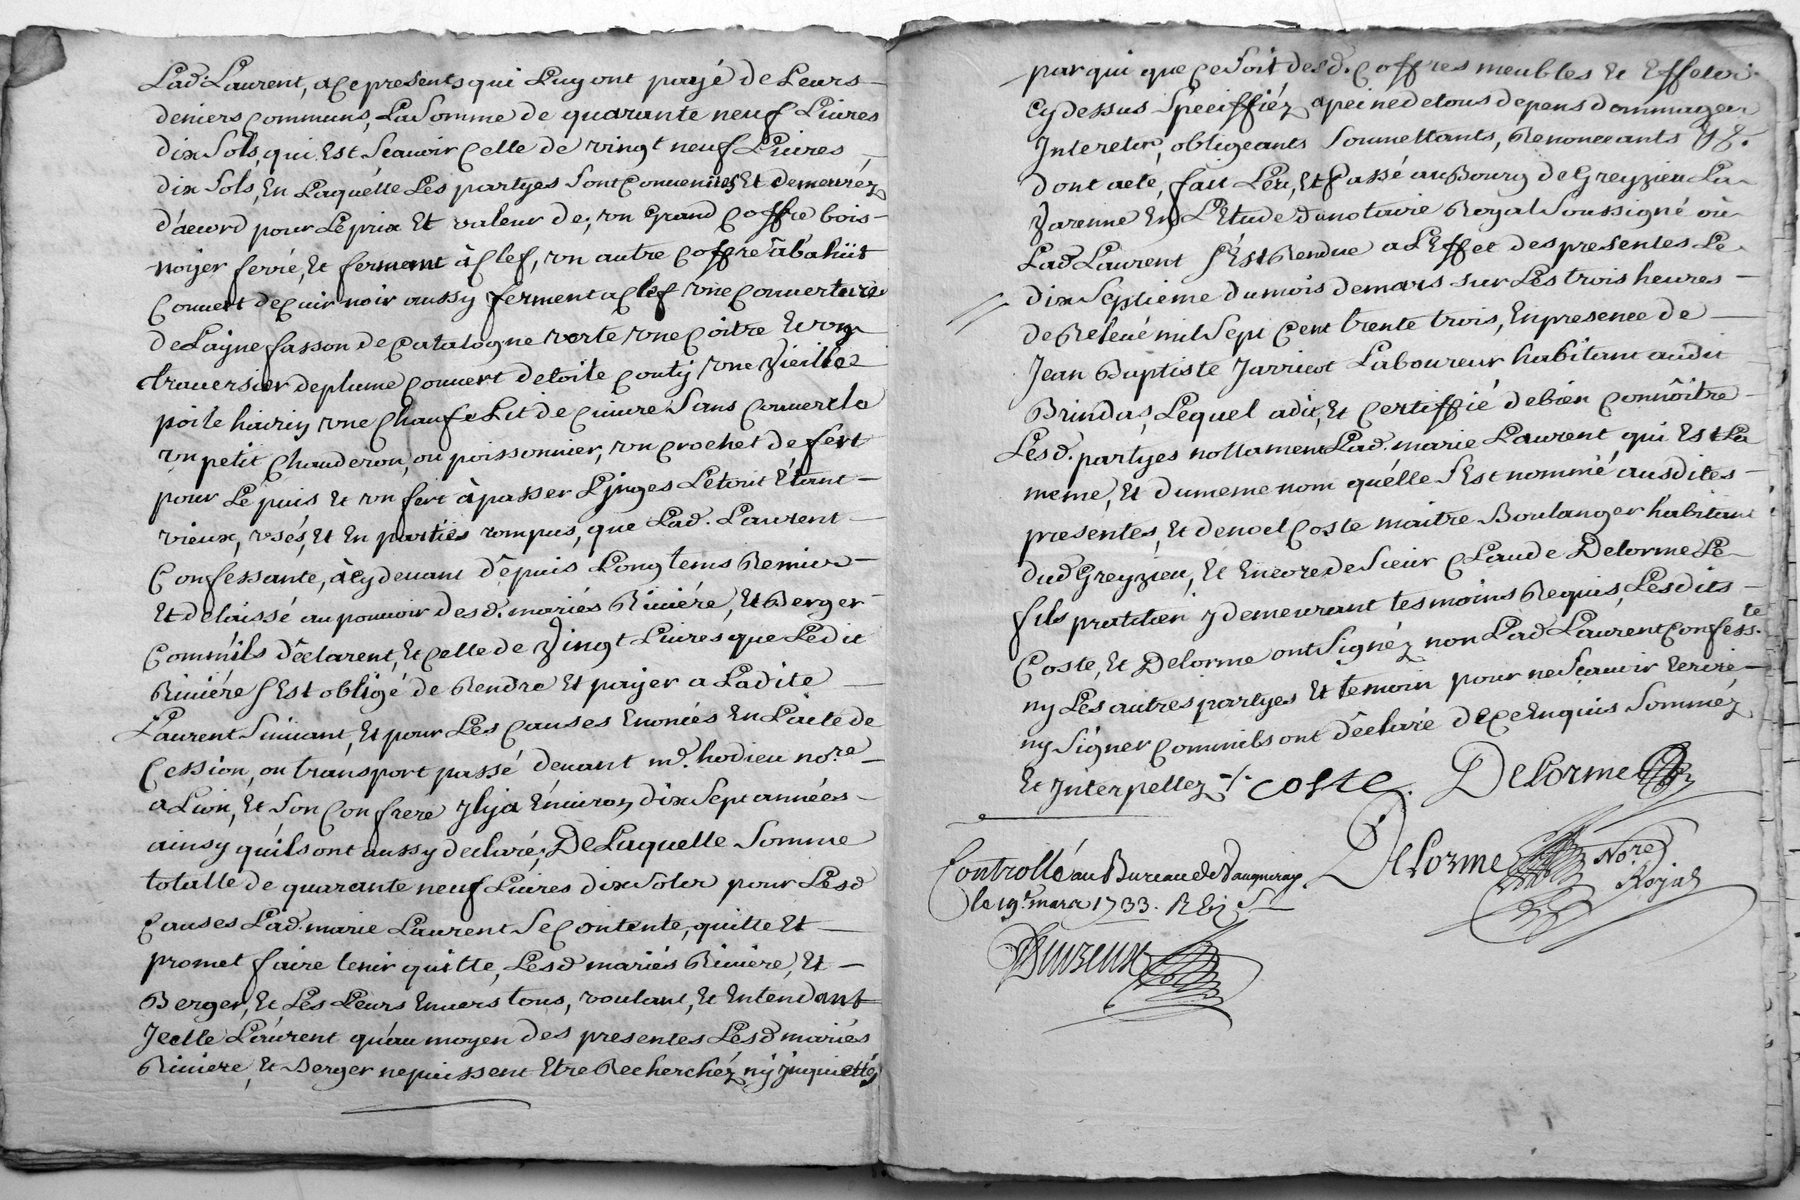 Lad. Laurent, a ce presents qui Luy ont payé de Leurs
deniers communs, La Somme de quarante neuf Livres
dix Sols, qui Est Scavoir Celle de vingt neuf Livres
dix Sols, En Laquélle Les partyes Sont Convenües Et demeuréz
d'acord pour Le prix Et valeur de, un grand Coffre bois
noyer ferré, Et fermant à Clef, un autre Coffre à bahüt
Couvert de Cuir noir aussy ferment a Clef une Couverture
de Layne fasson de Catalogne verte une Coitre Et un
traversier de plume Couvert de toile Couty une Vieille
poile une Chaufe Lit de Cuivre Sans Couvercle
un petit Chauderon, ou poissonnier, un Crochet de fert
pour Le puis Et un fert à passer Linges Le tout Étant
vieux, usés, Et En parties rompus, que Lad. Laurent
Confessante, à Cy devant dépuis Long tems Remis
Et delaissé au pouvoir desd. mariés Riviére, Et Berger
Comm'ils déclarent, Et Celle de Vingt Livres que Ledit
Riviére S'Est obligé de Rendre Et payer a Ladite
Laurent Suivant, Et pour Les Causes Enoncés En L'acte de
Cession, ou transport passé devant me. hodieu nore.
a Lion, Et Son Confrere Il y a Environ dix Sept années
ainsy qu'ils ont aussy declaré, De Laquelle Somme
totalle de quarante neuf Livres dix Sols pour Lesd
Causes Lad. marie Laurent Se Contente, quitte Et
promet faire tenir quitte, Lesd mariés Riviere, Et
Berger, Et Les Leurs Envers tous, voulant, Et Entendant
Icelle Laurent qu'au moyen des presentes Lesd mariés
Riviere, Et Berger ne puissent Etre Recherchéz ny Inquiettés
par qui que Ce Soit desd. Coffres meubles Et Effets
Cy dessus Spéciffiéz a peine de tous depens dommages
Interets, obligeants Soumettants, Renonceants &c.
dont acte, fait Leu, Et Passé au Bourg de Greyzieu La
Varenne En L'Etude du notaire Royal Soussigné où
Lad Laurent S'Est Rendue a L'Effet des presentes Le
dix Septiéme du mois de mars sur Les trois heures
de Relevé mil Sept Cent trente trois, En presence de
Jean Baptiste Jarricot Laboureur habitant audit
Brindas, Lequel a dit, Et Certiffié de bien Connôitre
Lesd. partyes nottament Lad. marie Laurent qui Est La
meme, Et du meme nom qu'élle S'Est nommé ausdites
presentes, Et de noel Coste maitre Boulanger habitant
dud Greyzieu, Et Encore de Sieur Claude Delorme Le
fils pratitien y demeurant tesmoins Requis, Lesdits
Coste, Et Delorme ont Signéz non Lad Laurent Confess.te
ny Les autres partyes Et temoin pour ne Scavoir Ecrire,
ny Signer Comm'ils ont déclaré de Ce Enquis Sommez
Et Interpellez
coste. Delorme
Delorme Nore
Royal
Controllé au Bureau de Vaugneray
le 19e. mars 1733.